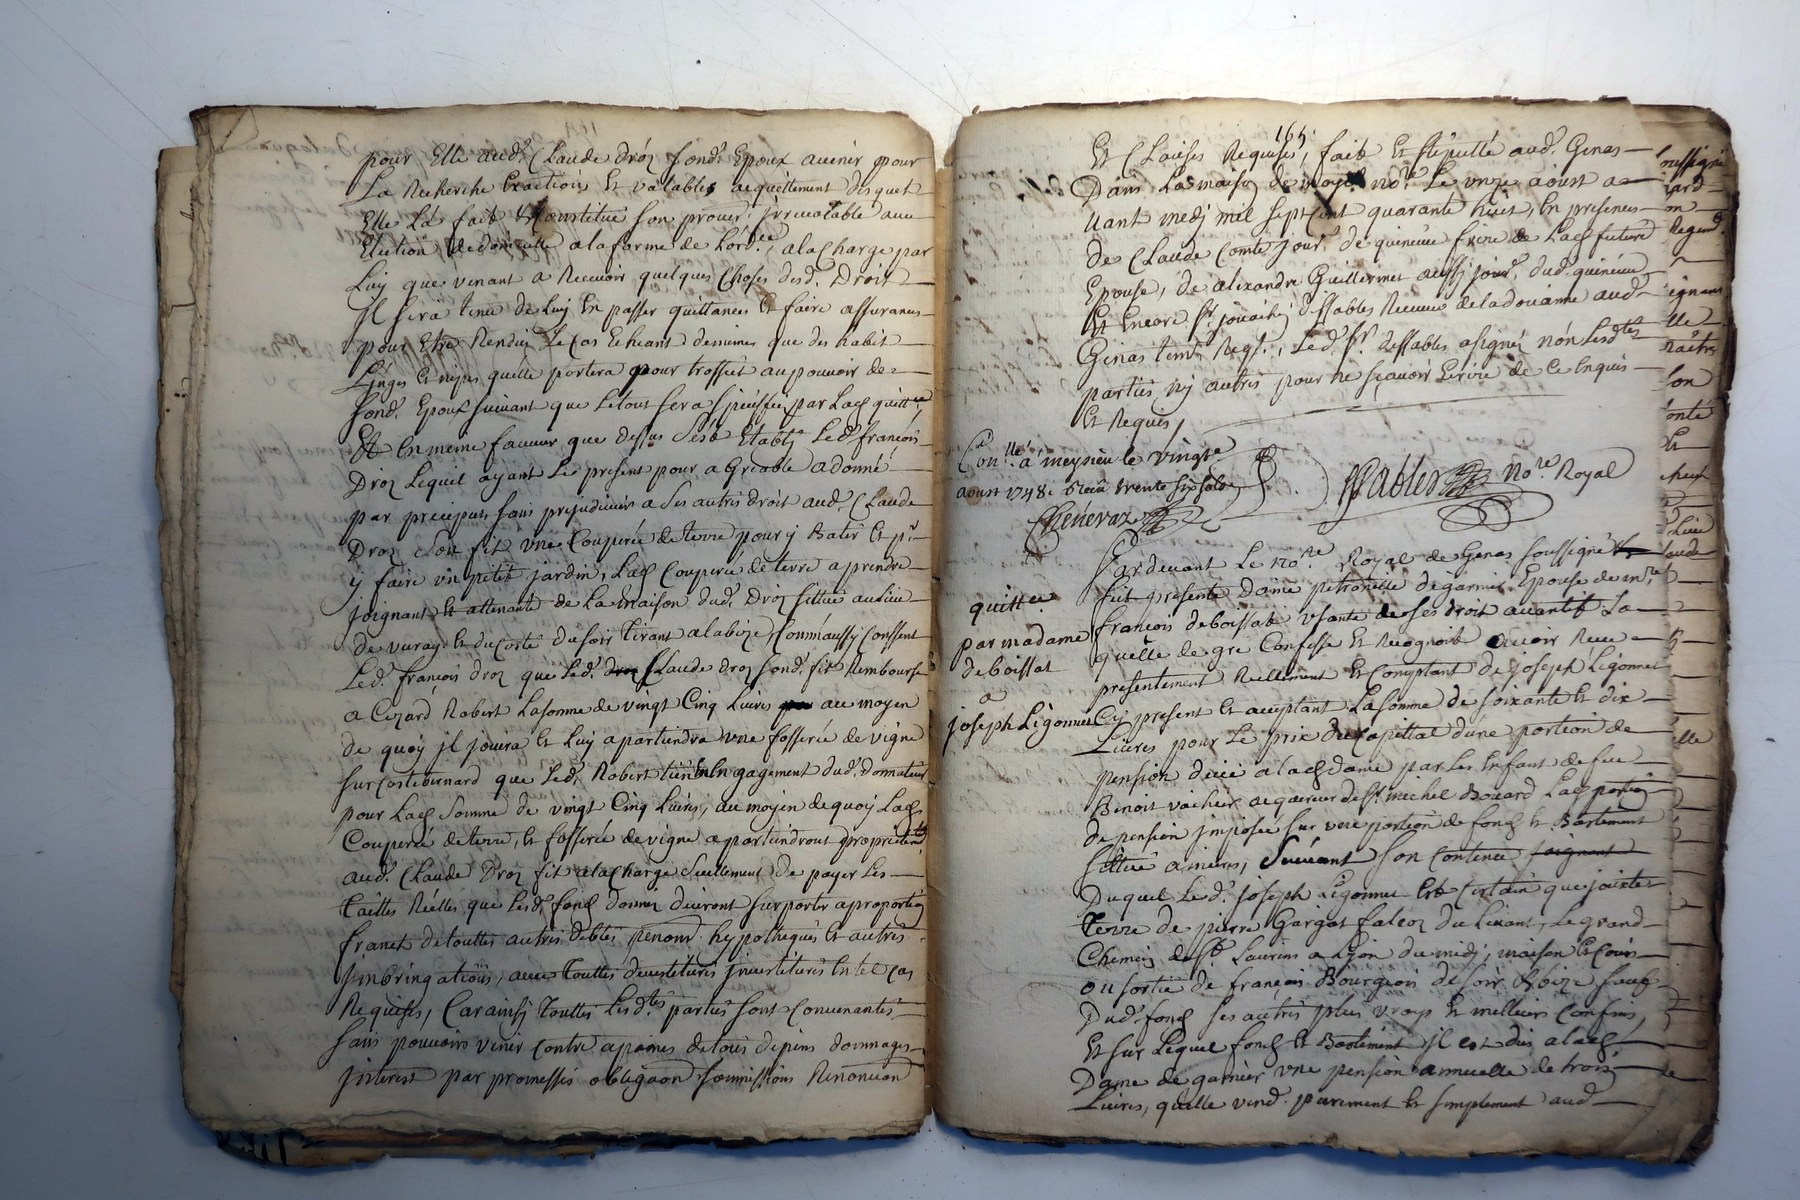 pour Elle aud.t Claude droz fond.t Epoux avenir pour
La Recherche Exactions Et valables acquittement desquels
Elle La fait Et Constitué son procur. irrevocable avec
Election de domicille a la forme de L'ord.ce a la Charge par
Luy que venant a Recevoir quelques Choses desd. Droit
Il sera tenu de Luy En passer quittances Et faire assurances
pour Etre Rendus Le Cas Echeant de mêmes que des habits
Linges Et nipes quelle portera pour trossets au pouvoir de
fond. Epoux suivant que Le tout sera specifié par Lad. quitt.ce
Et En meme faveur que dessus s'est Etably Led. françois
Droz Lequel ayant Le present pour agréable a donné
par preciput sans prejudicier a ses autres droit aud. Claude
Droz son fils vne Couperée de terre pour y Batir Et p.r
y faire vn petit jardin, Lad. Couperée de terre a prendre
joignant Et attenante de La maison dud. Droz sittue au Lieu
de vuray Et du Coté du soir tirant a la bize, Comme aussy Consent
Led. françois droz que Led. Claude droz fond. fils Rembourse
a Cezard Robert La somme de vingt Cinq Livres au moyen
de quoy jl jouira Et Luy apartiendra vne fosserée de vigne
sur Costebernard que Led. Robert tient En Engagement dud. donnateur
pour Lad. somme de vingt Cinq Livres, au moyen de quoy Lad.
Couperée de terre, Et fosserée de vigne apartiendront
aud. Claude Droz fils a la Charge seullement de payer Les
Tailles Réelles que Lesd. fonds donnez devront suporter a proportion
franct de touttes autres debtes hypotheques Et autres
jmbringations, avec touttes devestitures jnvestitures En tel Cas
Requises, Car ainsy touttes Lesd.tes parties sont Convenantes
sans pouvoir venir Contre a peines de tous depens dommages
jnterest par promesses obligaon soumissions Renonciaon
165.
Et Clauses Requises, fait Et stipullé aud. Genas
Dans La maison de moyd. no.re Le vnze aoust a-
vant medj mil sept Cent quarante huit, En presences
de Claude Comte jour.r de quincieu frere de Lad. future
Epouse, de alixandre Guillermet aussy jour.r dud. quincieu
Et Encore S.r jouachin Dessables Receveur de la douanne aud.
Genas tem.s Req.s, Led. S.r dessables a signé nón Lesd.tes
parties nj autres pour ne sçavoir Ecrire de Ce Enquis
Et Requis /
Con.llé a meysieu le vingt
aoust 1748. Receu trente six sols
Chenevaz
Sablex no.re Royal
quitt.ce
par madame
deboissat
a
joseph Ligonnet
Pardevant Le no.re Royal de Genas soussigné
fut presente Dame petronille de garnier Epouse de m.re
francois deboissat vsante de ses droit avantif La
quelle de gré Confesse Et Recognoit avoir Receu
presentement Reellement Et Comptant de joseph Ligonnet
Cy present Et acceptant La somme de soixante Et dix
Livres pour Le prix du Capittal d'une portion de
pension deüe a lad. dame par Les Enfant de feu
Benoit vacher acquereur de S.r michel Bouard Lad. portion
de pension jmposée sur vne portion de fond Et Bastiment
sittué a mieres, Suivant son Contenu joignant
Duquel Led. joseph Ligonnet Est Certain que jouxte
Terre de pierre Gargot falcoz du Levant, Le grand
Chemin de S.t Laurens a Lyon du medj, maison Et Cour
ou sortie de françois Bourgeois de soir Et bize sauf
Dud. fond ses autres plus vrays Et meilleurs Confins,
Et sur Lequel fond Et Bastiment jl est dues a lad.
Dame de garnier vne pension annuelle de trois
Livres, quelle vend purement Et simplement aud